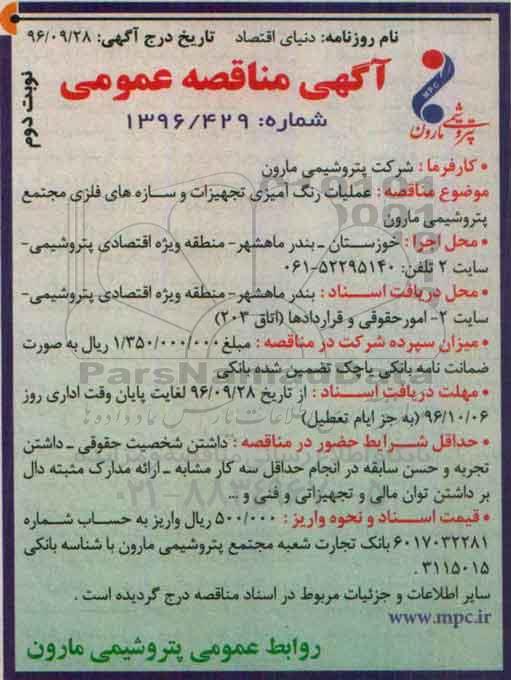 نام روزنامه: دنیای اقتصاد    تاریخ درج آگهی: ۹۶/۰۹/۲۸
نوبت دوم
آگهی مناقصه عمومی
شماره: ۱۳۹۶/۴۲۹
MPC
پتروشیمی مارون
• کارفرما : شرکت پتروشیمی مارون
موضوع مناقصه : عملیات رنگ آمیزی تجهیزات و سازه های فلزی مجتمع
پتروشیمی مارون
• محل اجرا : خوزستان ـ بندر ماهشهر- منطقه ویژه اقتصادی پتروشیمی-
سایت ۲ تلفن: ۵۲۲۹۵۱۴۰-۰۶۱
• محل دریافت اسـناد : بندر ماهشهر- منطقه ویژه اقتصادی پتروشیمی-
سایت ۲- امورحقوقی و قراردادها (اتاق ۲۰۳)
• میزان سپرده شرکت در مناقصه : مبلغ ۱/۳۵۰/۰۰۰/۰۰۰ ریال به صورت
ضمانت نامه بانکی یاچک تضمین شده بانکی
ParsNamadData
• مهلت دریافت اسـناد : از تاریخ ۹۶/۰۹/۲۸ لغایت پایان وقت اداری روز
۹۶/۱۰/۰۶ (به جز ایام تعطیل)
• حداقل شـرایط حضور در مناقصه : داشتن شخصیت حقوقی ـ داشتن
تجربه و حسن سابقه در انجام حداقل سه کار مشابه ـ ارائه مدارک مثبته دال
بر داشتن توان مالی و تجهیزاتی و فنی و ...
• قیمت اسـناد و نحوه واریز : ۵۰۰/۰۰۰ ریال واریز به حساب شـماره
۶۰۱۷۰۳۲۲۸۱ بانک تجارت شعبه مجتمع پتروشیمی مارون با شناسه بانکی
۳۱۱۵۰۱۵ .
سایر اطلاعات و جزئیات مربوط در اسناد مناقصه درج گردیده است .
www.mpc.ir
روابط عمومی پتروشیمی مارون